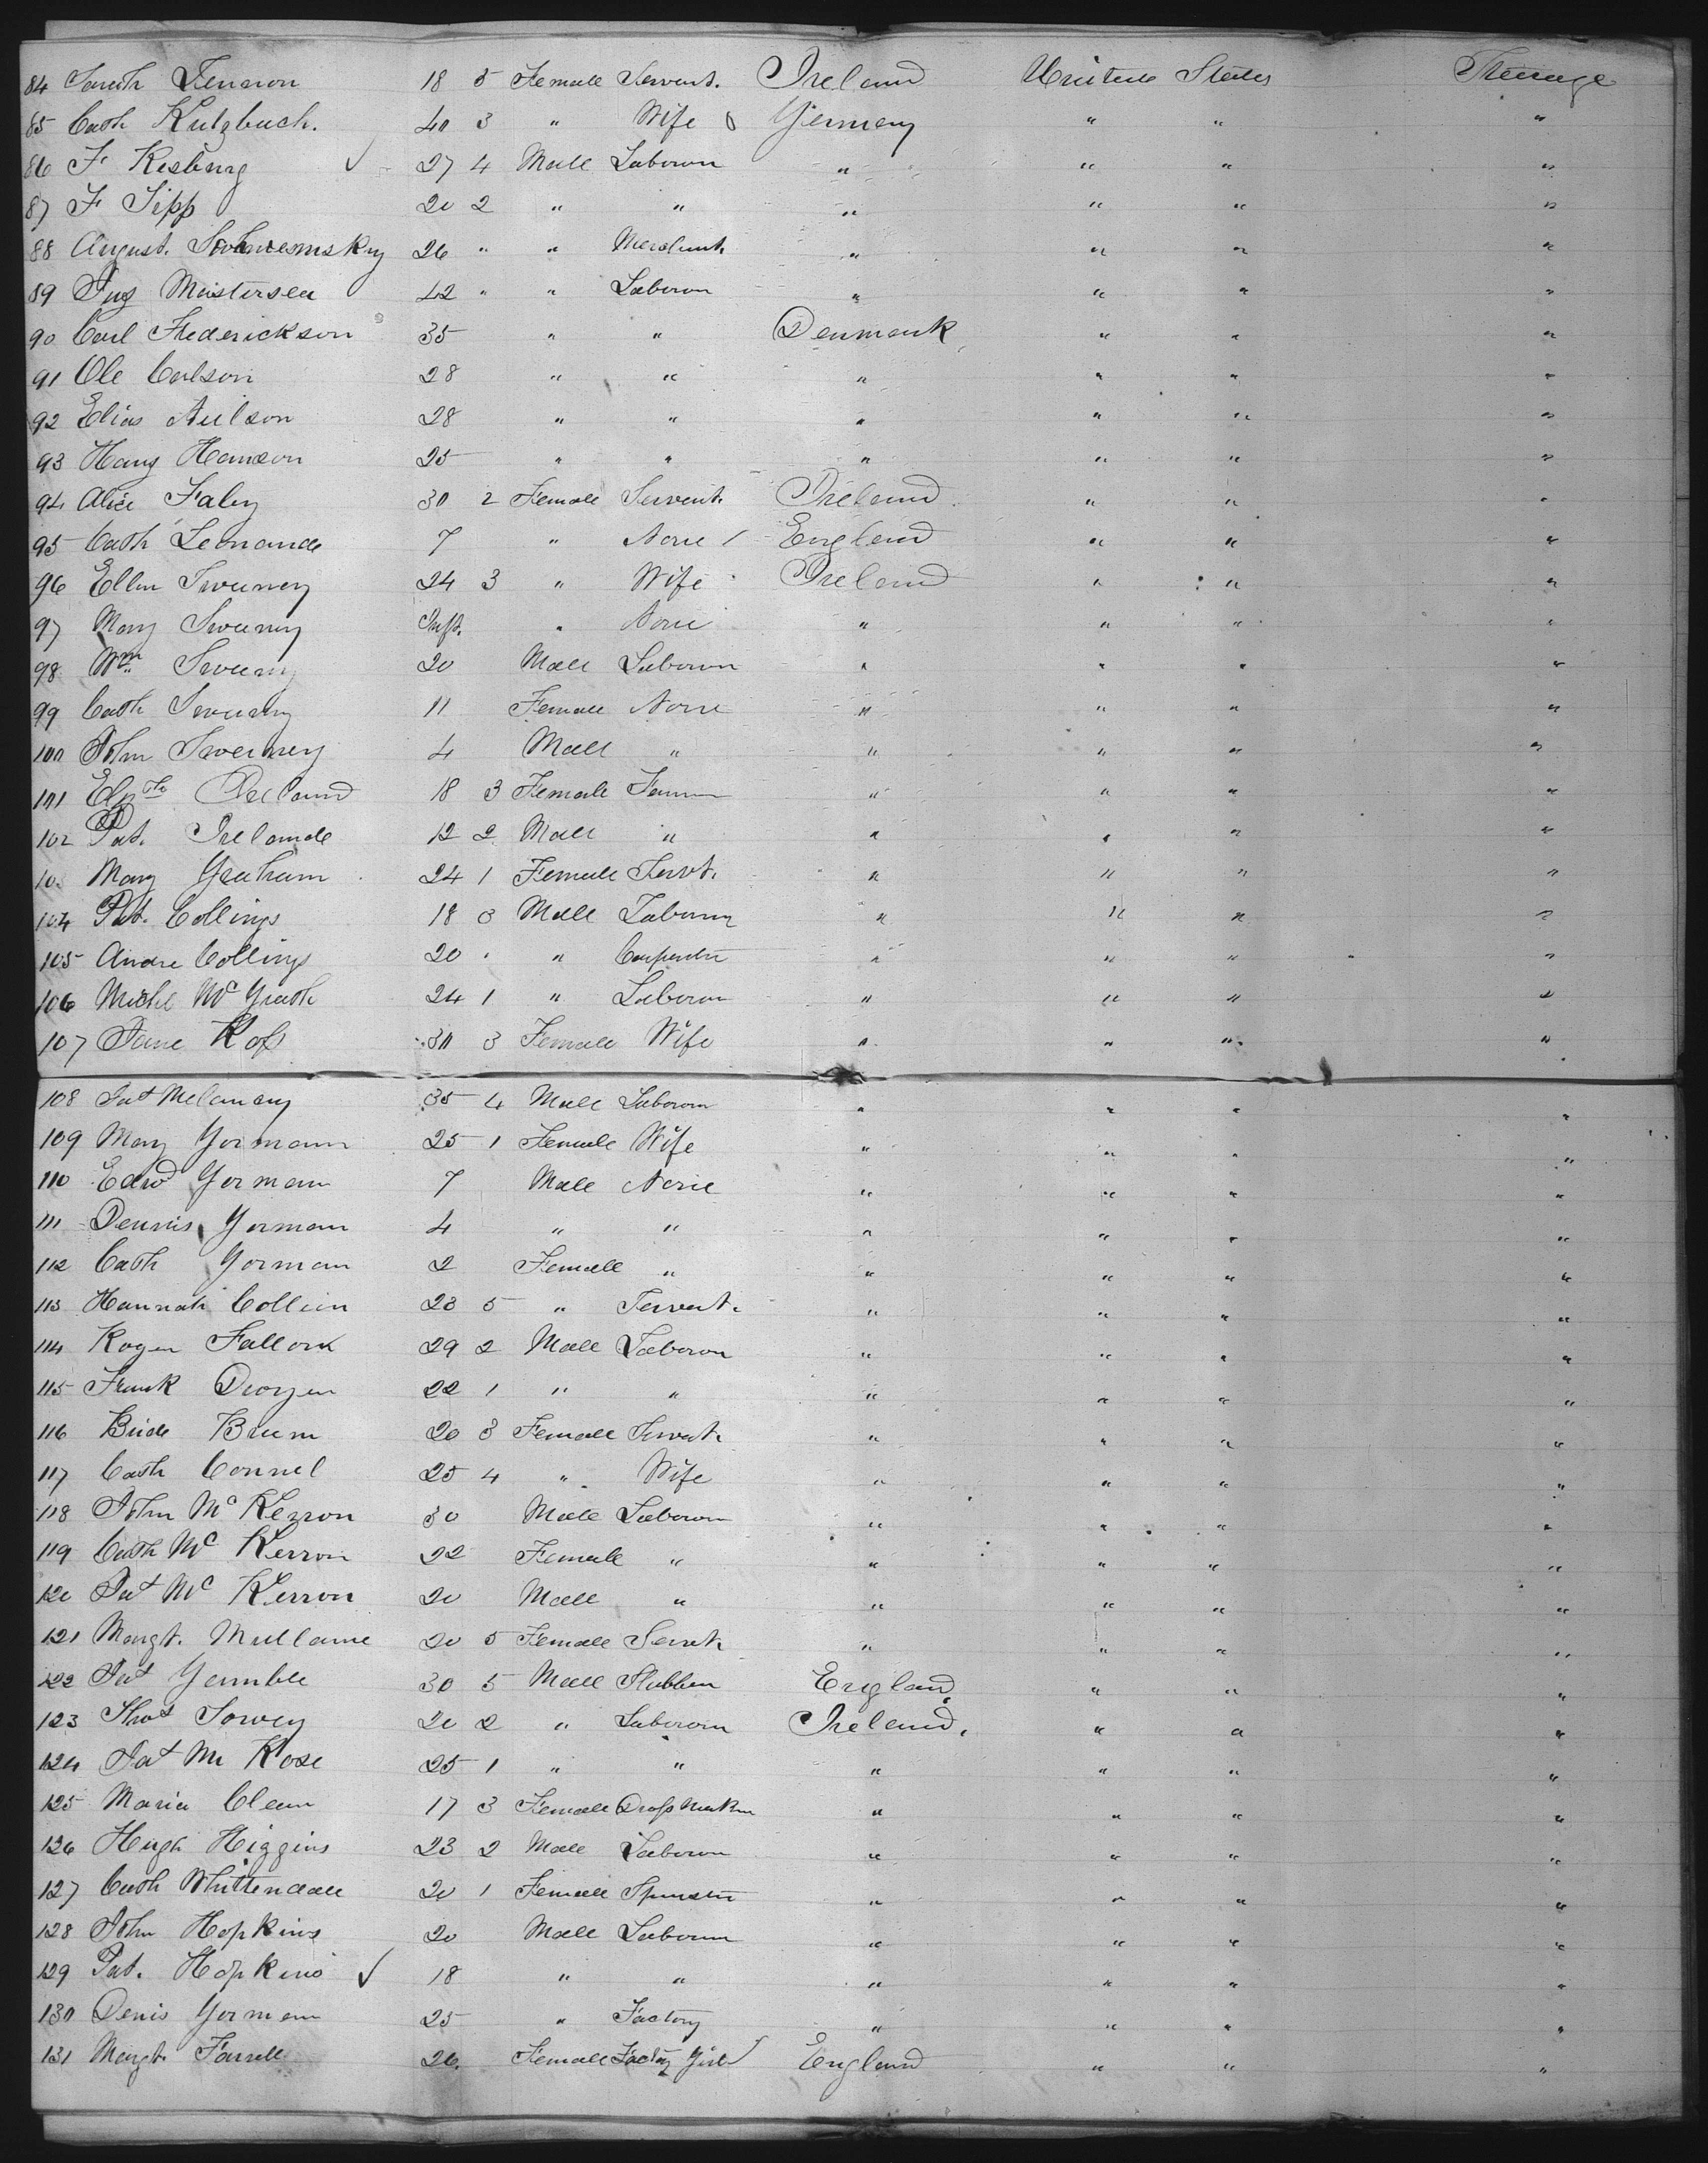 84 Fennon 18 5 Female Servent. Ireland United States Steerage
85 Cath Kutzbuch. 40 3 " Wife Germany " " "
86 F Kesburg 27 4 Male Laborour " " " "
87 F Sipp 20 2 " " " " " "
88 August. 26 " " Merchant " " " "
89 Meistersen 42 " " Laborour " " " "
90 Carl Frederickson 35 " " Denmark " " "
91 Ole Carlson 28 " " " " " "
92 Elias Neilson 28 " " " " " "
93 Hans Hanson 25 " " " " " "
94 Alice Faley 30 2 Female Servent Ireland " " "
95 Cath Leonarde 7 " None England " " "
96 Ellen Sweeney 24 3 " Wife Ireland " " "
97 Mary Sweeney Inft. " None " " " "
98 Wm Sweeny 20 Male Laborour " " " "
99 Cath Sweeny 11 Female None " " " "
100 John Sweeney 4 Male " " " " "
101 Elizth Ireland 18 3 Female " " " "
102 Pat. Irelande 12 2 Male " " " " "
103 Mary Graham 24 1 Female Servt. " " " "
104 Pat. Collings 18 3 Male Laborour " " " "
105 Andre Collings 20 " " Carpenter " " " "
106 Michl McGrath 24 1 " Laborour " " " "
107 Jane Ross 30 3 Female Wife " " " "
108 Pat Melamary 35 4 Male Laborour " " " "
109 Mary Gormann 25 1 Female Wife " " " "
110 Edwd Gorman 7 Male None " " " "
111 Dennis Gorman 4 " " " " " "
112 Cath Gorman 2 Female " " " " "
113 Hannah Collien 23 5 " Servent. " " " "
114 Roger Fallon 29 2 Male Laborour " " " "
115 Frank 22 1 " " " " " "
116 Bride Brum 20 3 Female Servent. " " " "
117 Cath Connel 25 4 " Wife " " " "
118 John Mc Kerron 30 Male Laborour " " " "
119 Cath Mc Kerron 22 Female " " " " "
120 Pat Mc Kerron 20 Male " " " " "
121 Margt. Mullame 20 5 Female Servt. " " " "
122 Pat Gamble 30 5 Male England " " "
123 Thos Towey 20 2 " Laborour Ireland. " " "
124 Pat Mc Kose 25 1 " " " " " "
125 Maria Clean 17 3 Female Dress Maker " " " "
126 Hugh Higgins 23 2 Male Laborour " " " "
127 Cath Whittendale 20 1 Female Spinster " " " "
128 John Hopkins 20 Male Laborour " " " "
129 Pat. Hopkins 18 " " " " " "
130 Denis Gorman 25 " Factory " " " "
131 Margt. Farrell 26 Female Factory Girl England " " "